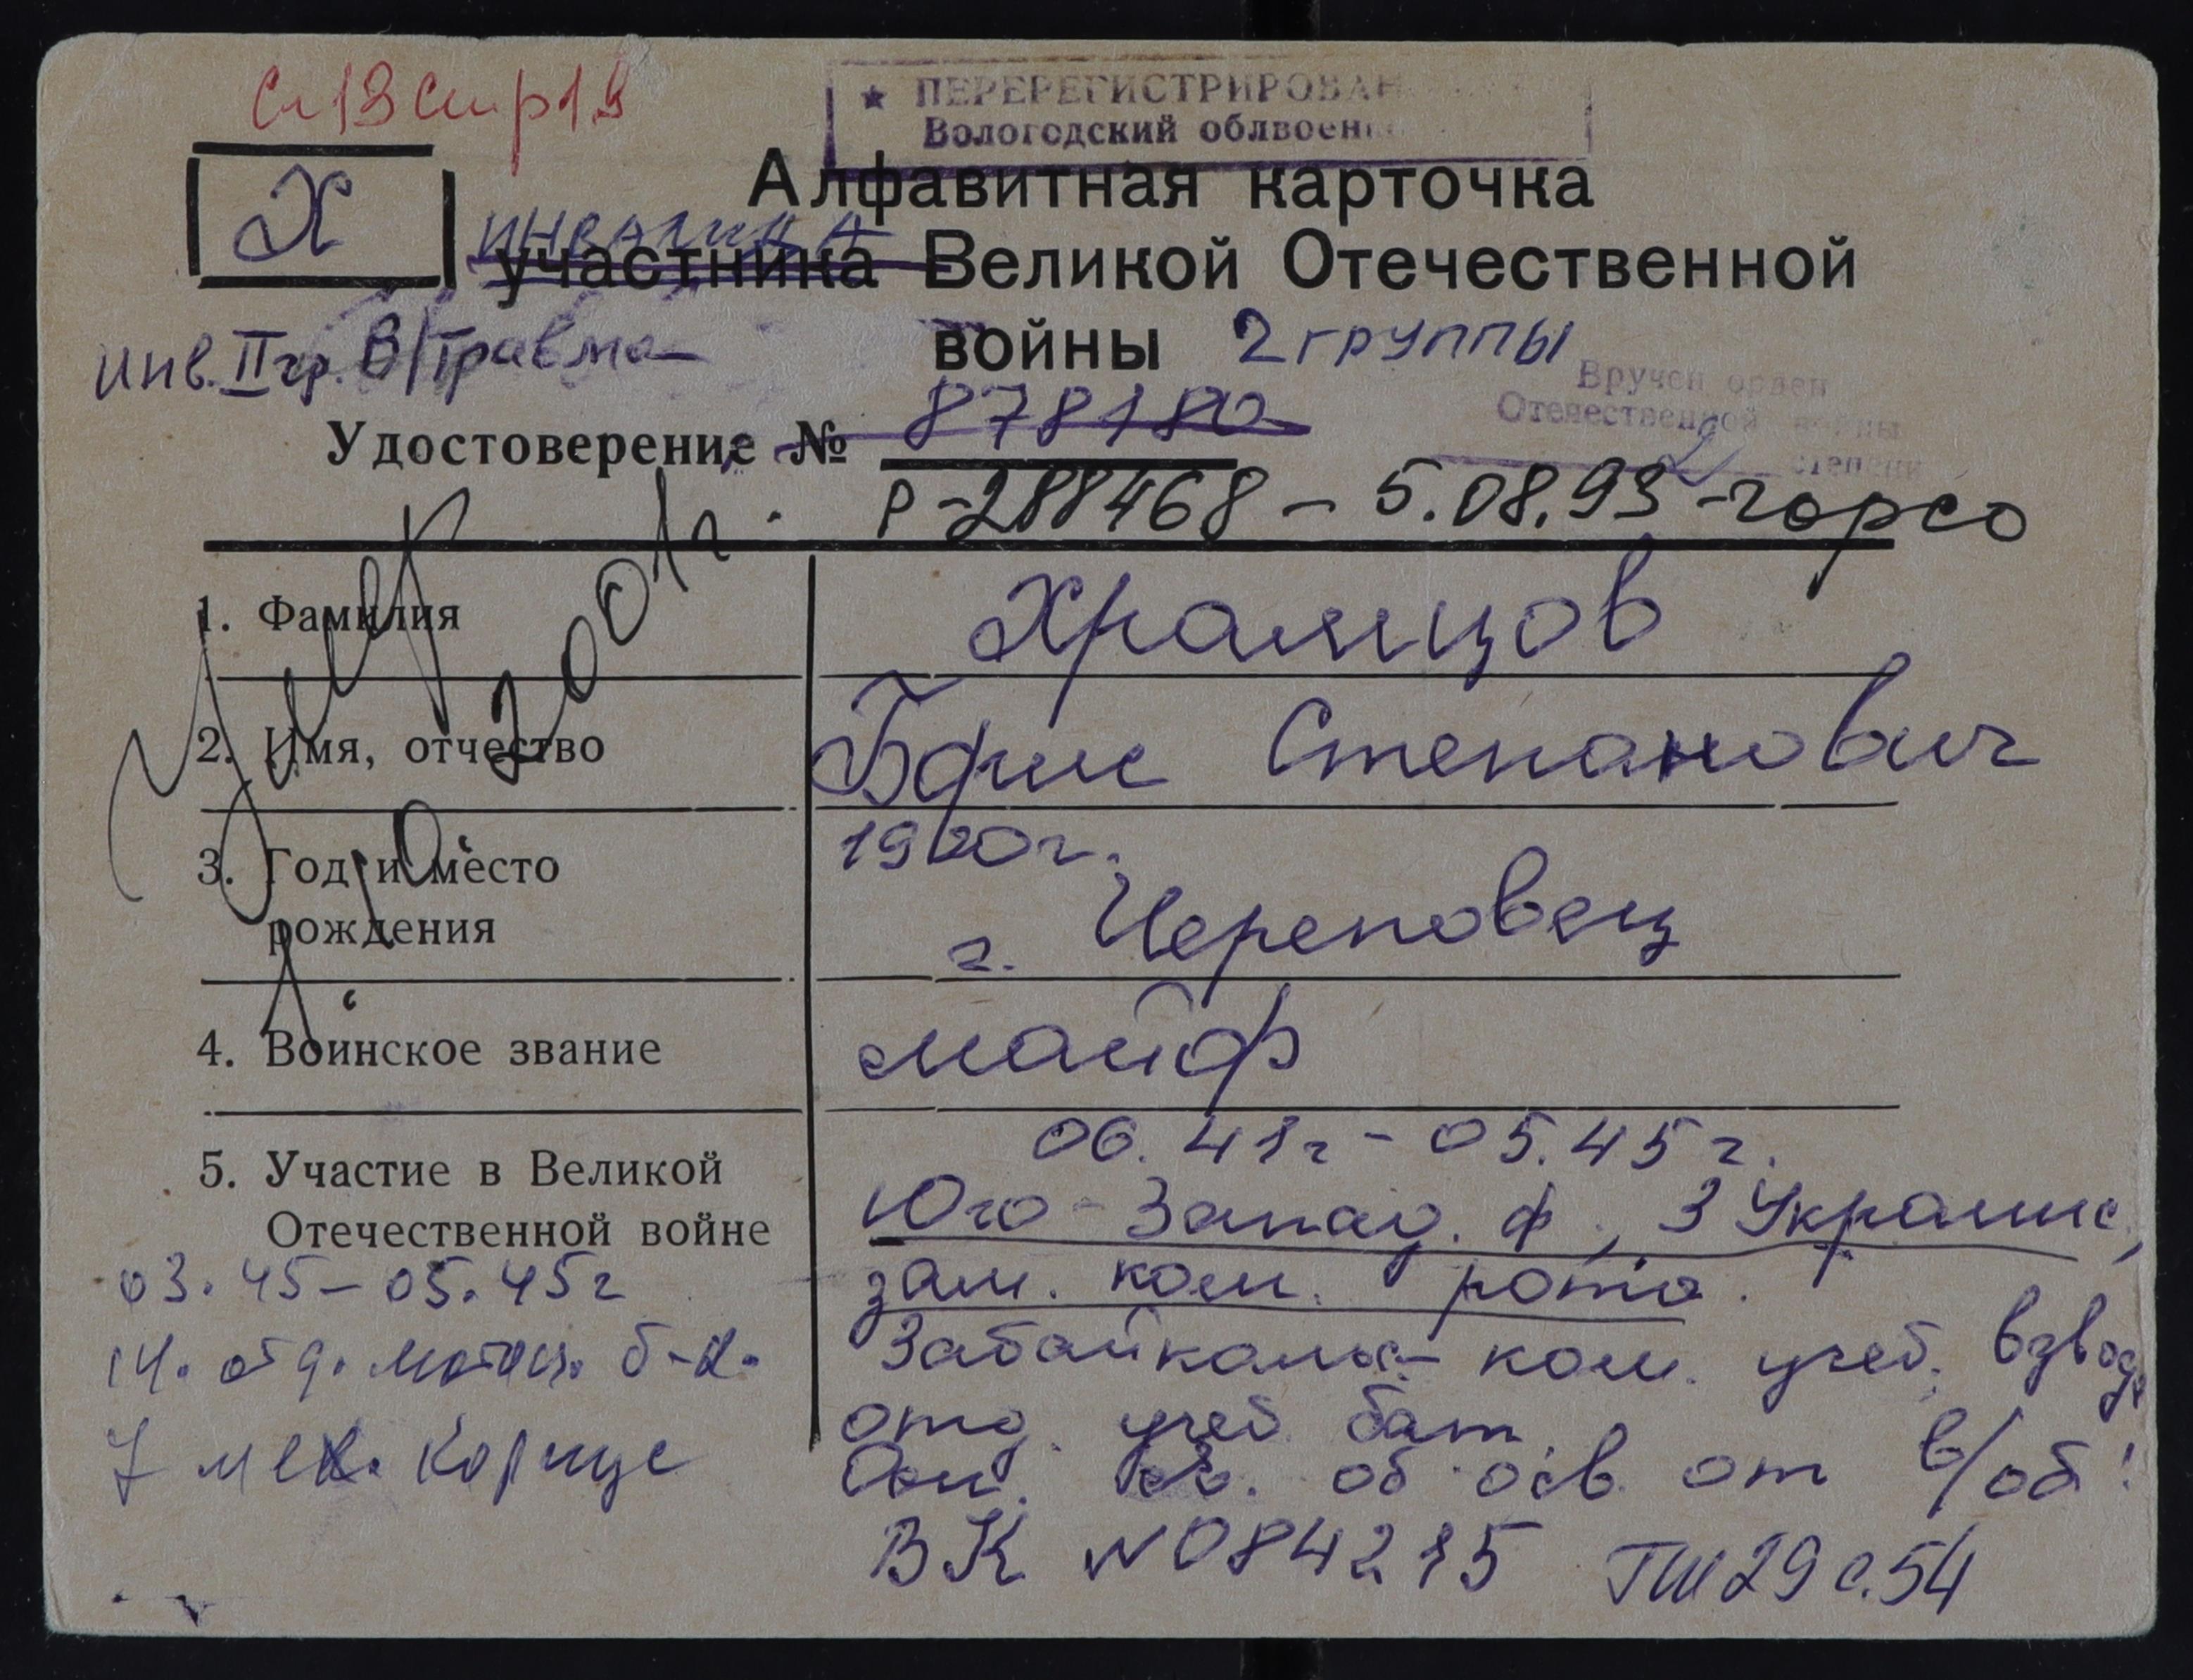 Сп 19 стр 19
★ ПЕРЕРЕГИСТРИРОВАН
Вологодский облвоен
Х
Алфавитная карточка
ИНВАЛИДА
участника Великой Отечественной
войны 2 группы
инв. II гр. В/травма
Вручен орден
Отечественной войны
2 степени
Удостоверение № 878180
Р-288468 - 5.08.93 - горсо
Умер 2001г.
1. Фамилия Храмцов
2. Имя, отчество Борис Степанович
3. Год и место 1920г.
рождения г. Череповец
4. Воинское звание майор
06.41г - 05.45г.
5. Участие в Великой
Отечественной войне
Юго-Запад. ф., 3 Украинс,
зам. ком. рота.
Забайкальс- ком. учеб. взвод,
отд. учеб. бат.
об осв. от в/об.
ВК №084215 ГШ 29 с.54
03.45-05.45г
14. отд. мотоц. б-н.
7 мех. корпус